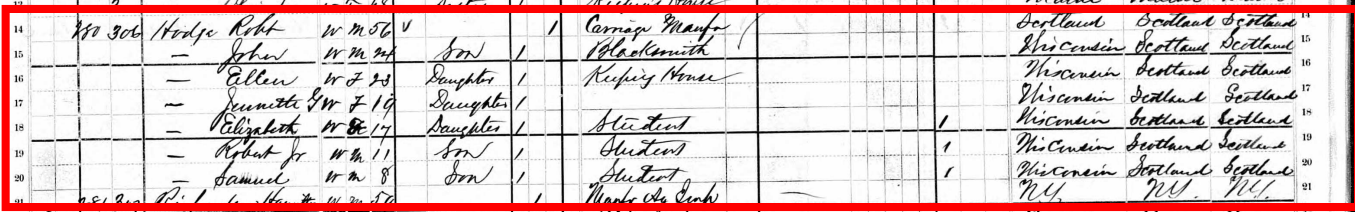 14 280 306 Hodge Robt W M 56 1 Carriage Manfr Scotland Scotland Scotland 14
15 — John W M 24 Son 1 Blacksmith Wisconsin Scotland Scotland 15
16 — Ellen W F 23 Daughter 1 Keeping House Wisconsin Scotland Scotland 16
17 — Jennette G W F 19 Daughter 1 Wisconsin Scotland Scotland 17
18 — Elizabeth W F 17 Daughter 1 Student 1 Wisconsin Scotland Scotland 18
19 — Robert Jr W M 11 Son 1 Student 1 Wisconsin Scotland Scotland 19
20 — Samuel W M 8 Son 1 Student 1 Wisconsin Scotland Scotland 20
21 W M 1 Manfr Ag NY. NY. NY. 21